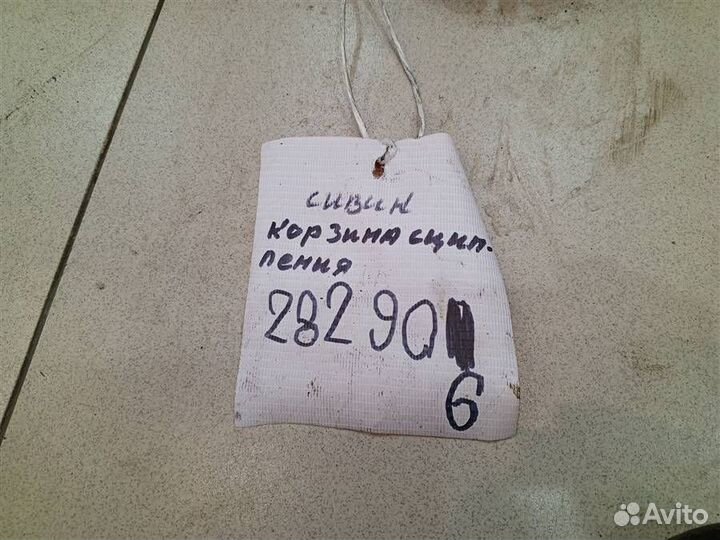 сивик
корзина сцип-
ления
28290
6
Avito